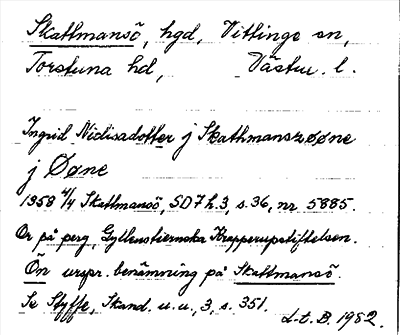 Skattmansö, hgd, Vittinge sn,
Torstuna hd, Västm. l.
Ingrid Niclisadotter j Skathmanszøøne
j Øøne
1358 4/4 Skattmansö, SD 7 h. 3, s. 36, nr 5885.
Or på perg, Gyllenstiernska Krapperupstiftelsen.
Ön urspr. benämning på Skattmansö.
Se Styffe, Skand. u. u., 3, s. 351.
L-t. B. 1982.